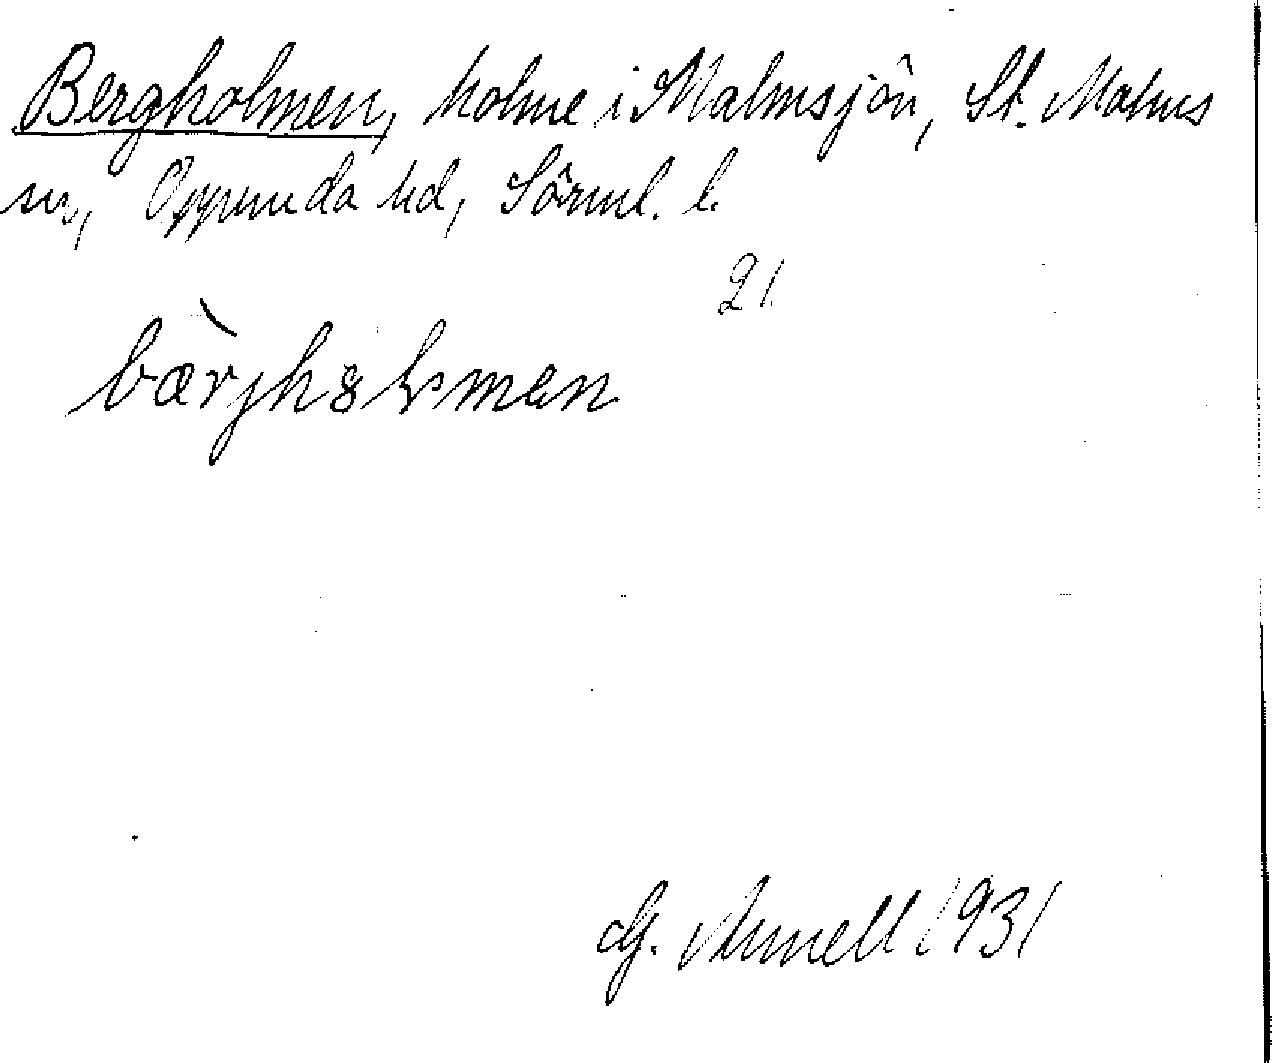 Bergholmen, holme i Malmsjön, St. Malms
sn, Oppunda hd, Sörml. l.
21.
bær̀jhålmen
G. Annell 1931